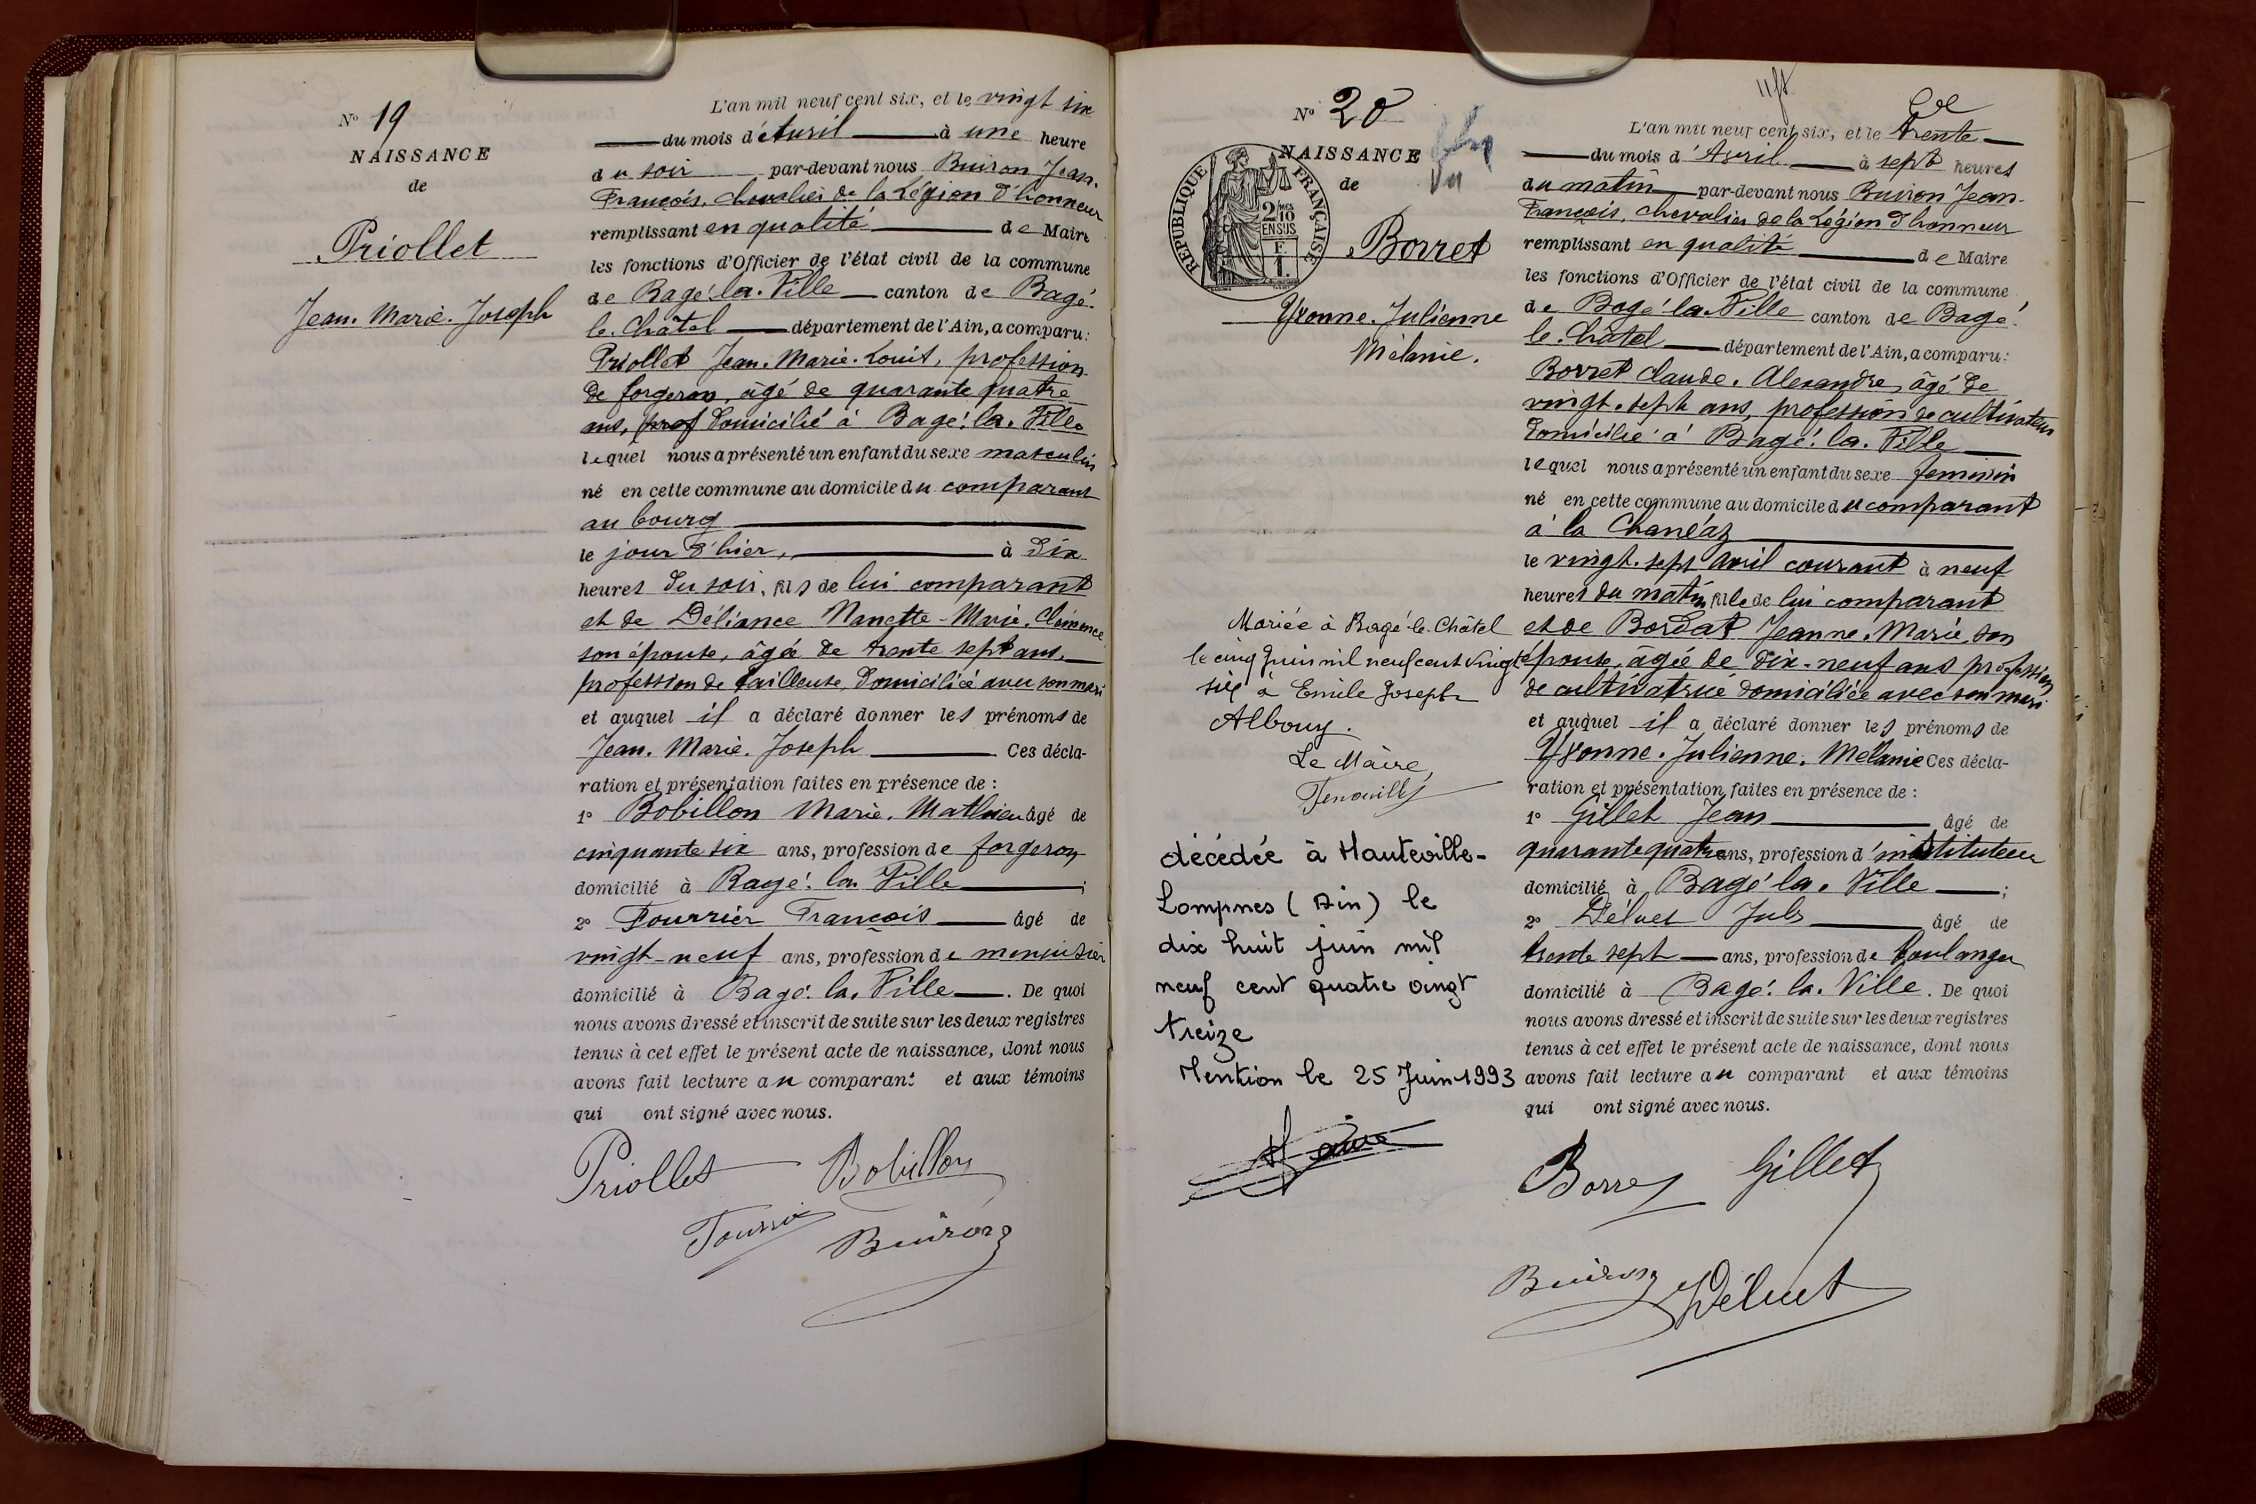 N° 19
NAISSANCE
de
Priollet
Jean. Marie. Joseph
L'an mil neuf cent six, et le vingt six
du mois d'Avril à une heure
du soir par-devant nous Buiron Jean.
François, chevalier de la Légion d'honneur
remplissant en qualité de Maire
les fonctions d'Officier de l'état civil de la commune
de Bagé. la. Ville canton de Bagé.
le. Châtel département de l'Ain, a comparu:
Priollet Jean. Marie. Louis, profession
de forgeron, âgé de quarante quatre
ans, prof domicilié à Bagé. la. Ville
lequel nous a présenté un enfant du sexe masculin
né en cette commune au domicile du comparant
au bourg
le jour d'hier, à dix
heures du soir, fils de lui comparant
et de Déliance Nanette-Marie. Clémence
son épouse, âgée de trente sept ans,
profession de tailleuse, domiciliée avec son mari
et auquel il a déclaré donner les prénoms de
Jean. Marie. Joseph Ces décla-
ration et présentation faites en présence de :
1° Bobillon Marie. Mathieu âgé de
cinquante six ans, profession de forgeron
domicilié à Bagé. la. Ville ;
2° Fourrier François âgé de
vingt-neuf ans, profession de menuisier
domicilié à Bagé. la. Ville. De quoi
nous avons dressé et inscrit de suite sur les deux registres
tenus à cet effet le présent acte de naissance, dont nous
avons fait lecture au comparant et aux témoins
qui ont signé avec nous.
Priollet Bobillon
Buiron
N° 20
NAISSANCE
de
Vu
RÉPUBLIQUE FRANÇAISE
2/10 EN SUS
F. 1.
Borret
Yvonne. Julienne
Mélanie.
Mariée à Bagé-le-Châtel
le cinq Juin mil neuf cent vingt
six à Emile Joseph
Albouy.
Le Maire,
décédée à Hauteville-
Lompnes (Ain) le
dix huit juin mil
neuf cent quatre vingt
treize
Mention le 25 Juin 1993
L'an mil neuf cent six, et le trente
du mois d'Avril à sept heures
du matin par-devant nous Buiron Jean-
François, chevalier de la Légion d'honneur
remplissant en qualité de Maire
les fonctions d'Officier de l'état civil de la commune
de Bagé la. Ville canton de Bagé.
le. Châtel département de l'Ain, a comparu:
Borret Claude. Alexandre, âgé de
vingt. sept ans, profession de cultivateur
domicilié à Bagé. la. Ville
lequel nous a présenté un enfant du sexe feminin
né en cette commune au domicile du comparant
à la Chanéaz
le vingt. sept avril courant à neuf
heures du matin fille de lui comparant
et de Bordat Jeanne. Marie son
épouse, âgée de dix-neuf ans profession
de cultivatrice domiciliée avec son mari
et auquel il a déclaré donner les prénoms de
Yvonne. Julienne. Mélanie Ces décla-
ration et présentation faites en présence de :
1° Gillet Jean âgé de
quarante quatre ans, profession d'instituteur
domicilié à Bagé la. Ville ;
2° Déluet Jules âgé de
trente sept ans, profession de boulanger
domicilié à Bagé. la. Ville. De quoi
nous avons dressé et inscrit de suite sur les deux registres
tenus à cet effet le présent acte de naissance, dont nous
avons fait lecture au comparant et aux témoins
qui ont signé avec nous.
Gillet
Buiron Déluet